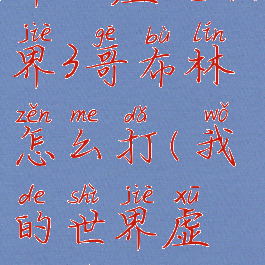 jiè gē bù lín
界3哥布林
zěn me dǎ wǒ
怎么打(我
de shì jiè xū
的世界虚